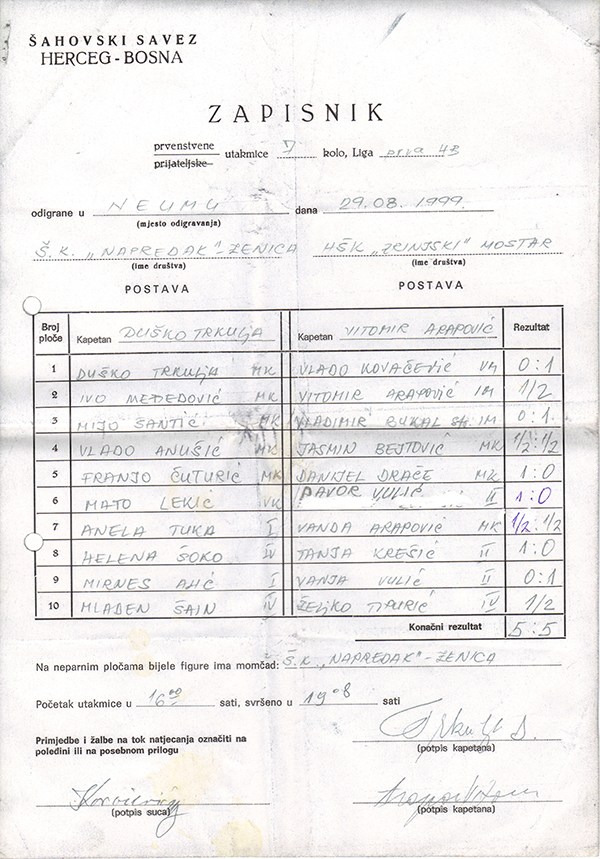 ŠAHOVSKI SAVEZ
HERCEG-BOSNA
ZAPISNIK
prvenstvene
prijateljske utakmice I kolo, Liga prva HB
odigrane u NEUMU dana 29.08.1999.
(mjesto odigravanja)
Š.K. „NAPREDAK"-ZENICA HŠK „ZRINJSKI" MOSTAR
(ime društva) (ime društva)
POSTAVA POSTAVA
Broj ploče Kapetan DUŠKO TRKULJA Kapetan VITOMIR ARAPOVIĆ Rezultat
1 DUŠKO TRKULJA MK VLADO KOVAČEVIĆ VM 0:1
2 IVO MEĐEDOVIĆ MK VITOMIR ARAPOVIĆ IM 1/2
3 MIJO ŠANTIĆ MK VLADIMIR RUKAL IM 0:1
4 VLADO ANUŠIĆ MK JASMIN BEJTOVIĆ MK 1/2:1/2
5 FRANJO ČUTURIĆ MK DANIJEL DRAČE MK 1:0
6 MATO LEKIĆ VK DAVOR VULIĆ II 1:0
7 ANELA TUKA I VANDA ARAPOVIĆ MK 1/2:1/2
8 HELENA ŠOKO IV TANJA KREŠIĆ II 1:0
9 MIRNES I VANJA VULIĆ II 0:1
10 MLADEN ŠAIN IV ŽELJKO TIPURIĆ IV 1/2
Konačni rezultat 5:5
Na neparnim pločama bijele figure ima momčad: Š.K „NAPREDAK"-ZENICA
Početak utakmice u 16 00 sati, svršeno u 19 08 sati
Primjedbe i žalbe na tok natjecanja označiti na
poleđini ili na posebnom prilogu
Trkulja D.
(potpis kapetana)
(potpis suca) (potpis kapetana)